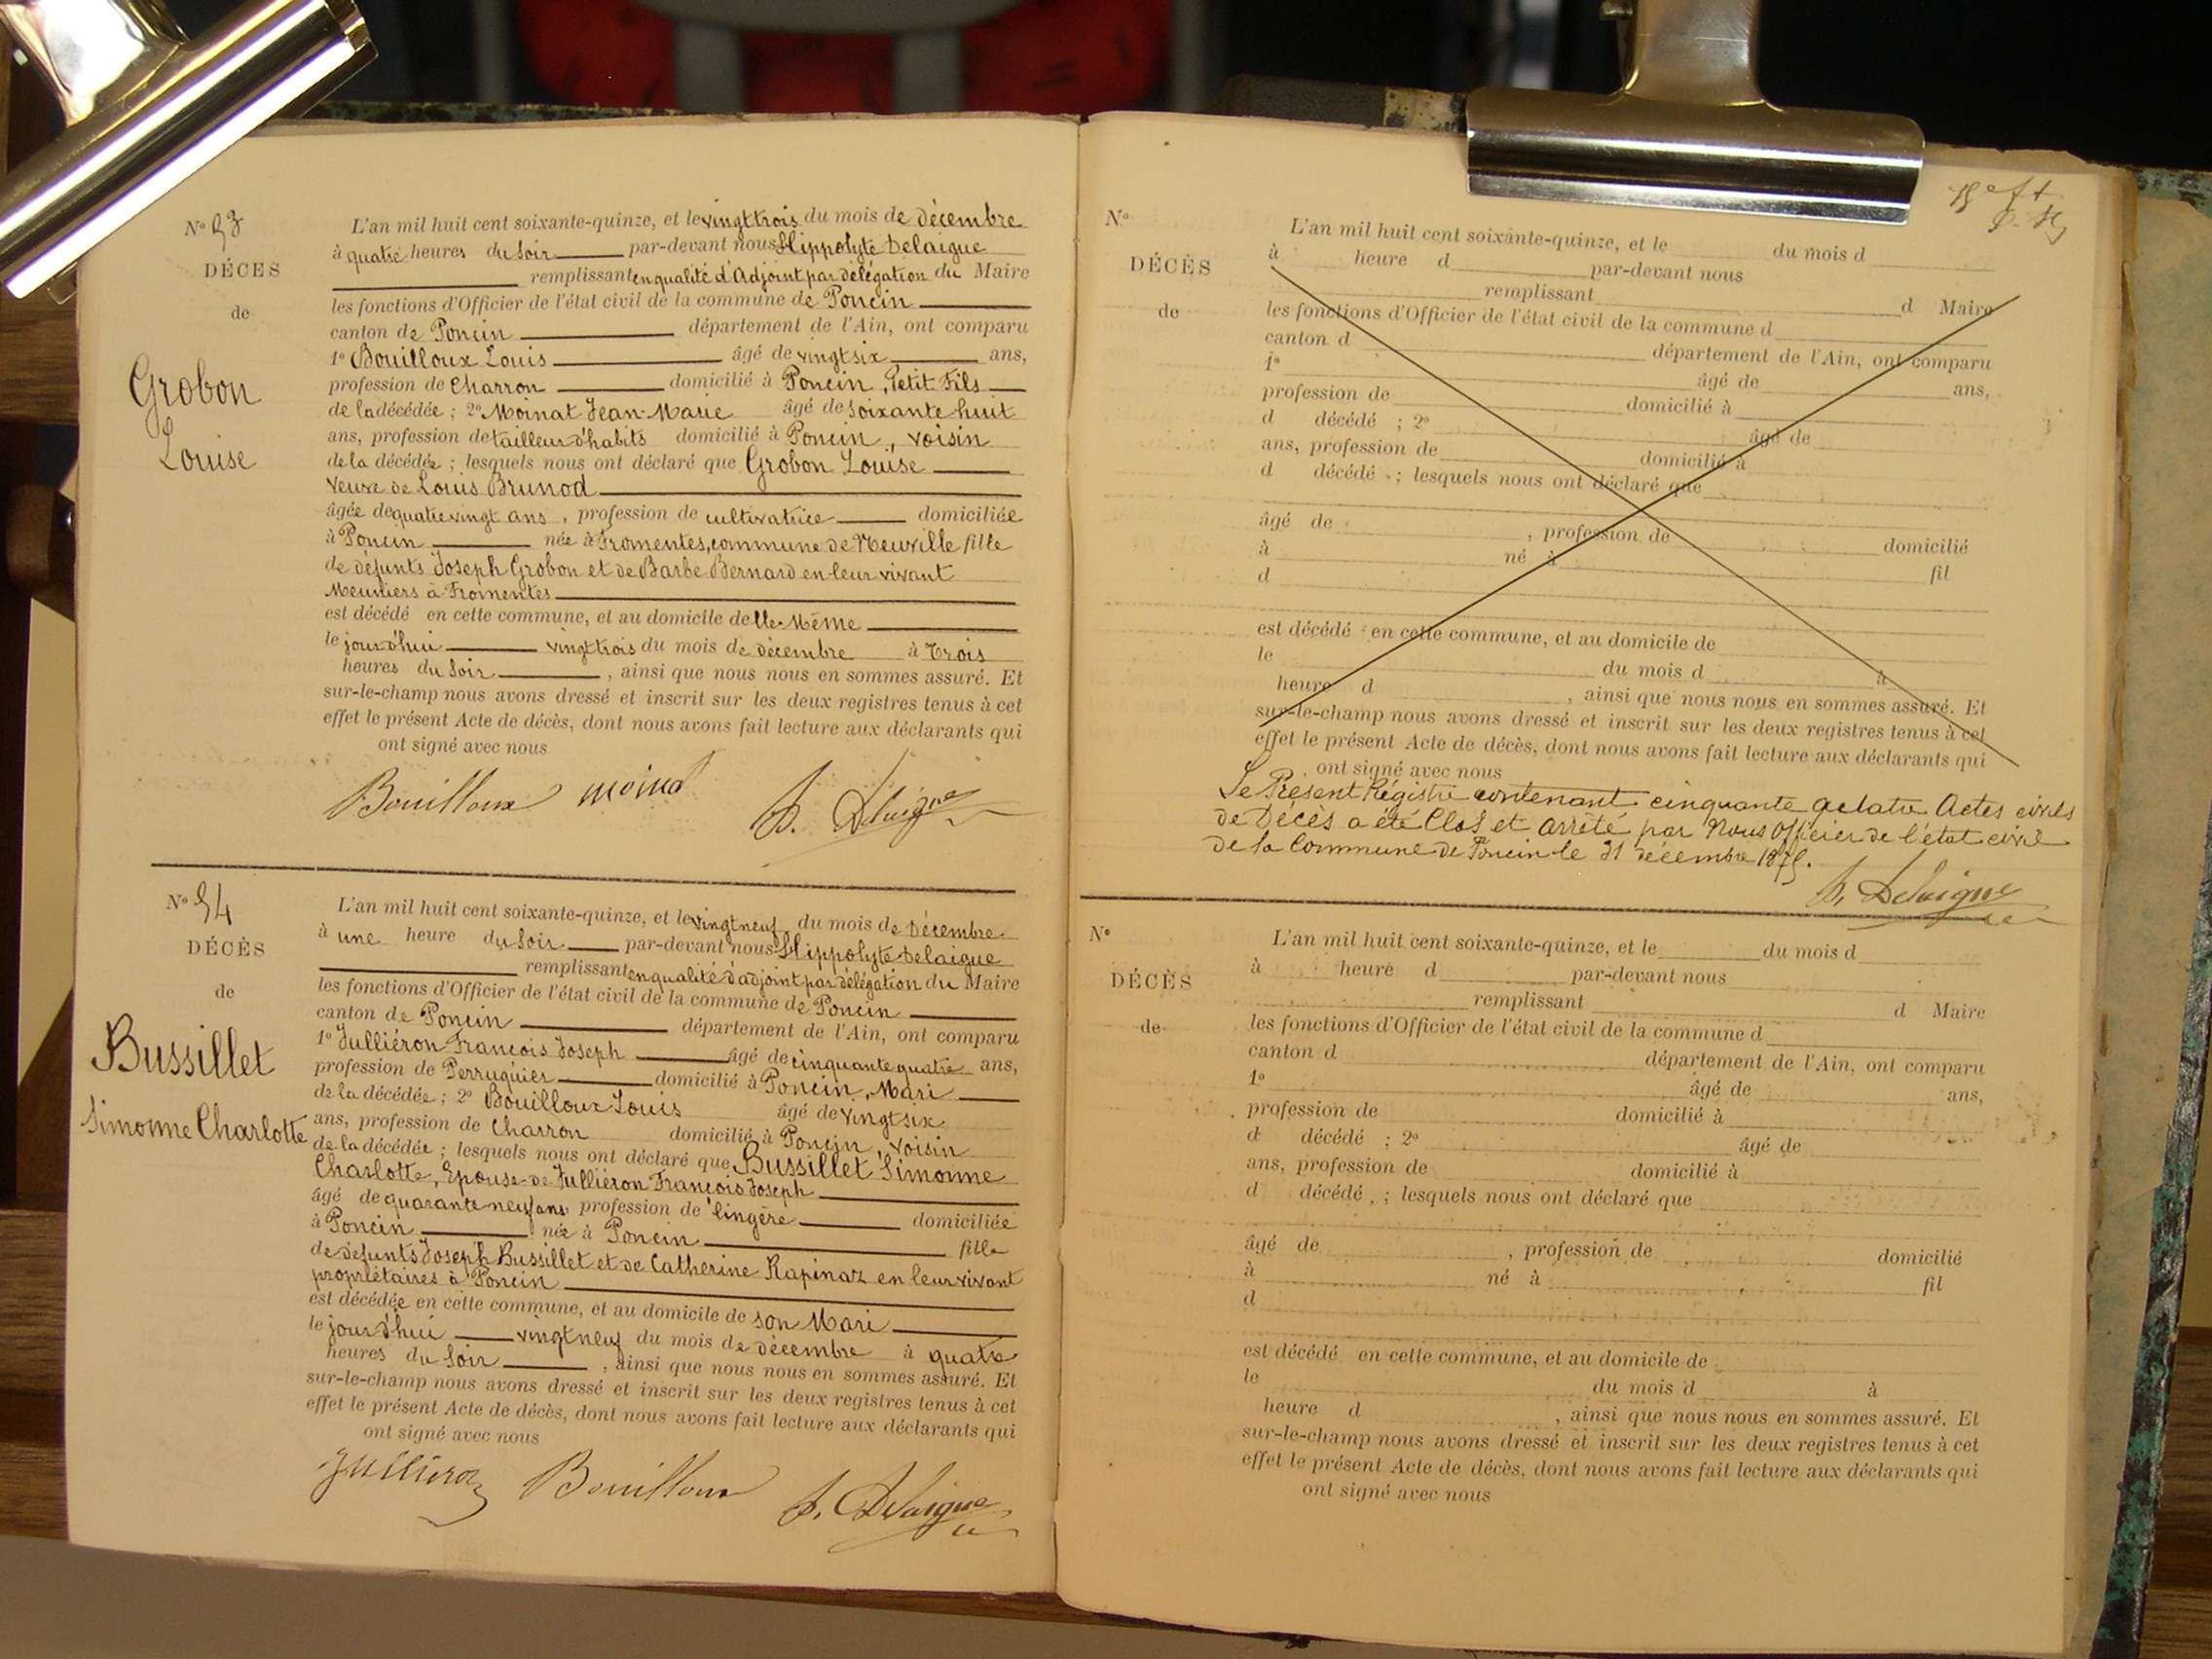 N° 53
DÉCÈS
de
Grobon
Louise
L'an mil huit cent soixante-quinze, et le vingt trois du mois de décembre
à quatre heures du Soir par-devant nous Hippolyte Delaigue
remplissant en qualité d'Adjoint par délégation du Maire
les fonctions d'Officier de l'état civil de la commune de Poncin
canton de Poncin département de l'Ain, ont comparu
1° Bouilloux Louis âgé de vingt six ans,
profession de Charron domicilié à Poncin, Petit Fils
de la décédée ; 2° Moinat Jean-Marie âgé de soixante huit
ans, profession de tailleur d'habits domicilié à Poncin, voisin
de la décédée ; lesquels nous ont déclaré que Grobon Louise
Veuve de Louis Brunod
âgée de quatre vingt ans, profession de cultivatrice domiciliée
à Poncin née à Fromentes, commune de Neuville fille
de défunts Joseph Grobon et de Barbe Bernard en leur vivant
Meuniers à Fromentes
est décédé en cette commune, et au domicile de Elle-Même
le jourd'hui vingt trois du mois de décembre à Trois
heures du Soir, ainsi que nous nous en sommes assuré. Et
sur-le-champ nous avons dressé et inscrit sur les deux registres tenus à cet
effet le présent Acte de décès, dont nous avons fait lecture aux déclarants qui
ont signé avec nous
Bouilloux moinat H. Delaigue
N° 54
DÉCÈS
de
Bussillet
Simonne Charlotte
L'an mil huit cent soixante-quinze, et le vingt neuf du mois de Décembre
à une heure du Soir par-devant nous Hippolyte Delaigue
remplissant en qualité d'adjoint par délégation du Maire
les fonctions d'Officier de l'état civil de la commune de Poncin
canton de Poncin département de l'Ain, ont comparu
1° Julliéron François Joseph âgé de cinquante quatre ans,
profession de Perruquier domicilié à Poncin, Mari
de la décédée ; 2° Bouilloux Louis âgé de vingt six
ans, profession de Charron domicilié à Poncin, voisin
de la décédée ; lesquels nous ont déclaré que Bussillet Simonne
Charlotte, Epouse de Julliéron François Joseph
âgé de quarante neuf ans profession de lingère domiciliée
à Poncin née à Poncin fille
de défunts Joseph Bussillet et de Catherine Rapinaz en leur vivant
propriétaires à Poncin
est décédée en cette commune, et au domicile de son Mari
le jourd'hui vingt neuf du mois de décembre à quatre
heures du Soir, ainsi que nous nous en sommes assuré. Et
sur-le-champ nous avons dressé et inscrit sur les deux registres tenus à cet
effet le présent Acte de décès, dont nous avons fait lecture aux déclarants qui
ont signé avec nous
Julliéron Bouilloux H. Delaigue
N°
DÉCÈS
de
L'an mil huit cent soixante-quinze, et le du mois d
à heure d par-devant nous
remplissant d Maire
les fonctions d'Officier de l'état civil de la commune d
canton d département de l'Ain, ont comparu
1° âgé de ans,
profession de domicilié à
d décédé ; 2° âgé de
ans, profession de domicilié à
d décédé ; lesquels nous ont déclaré que
âgé de , profession de domicilié
à né à fil
d
est décédé en cette commune, et au domicile de
le du mois d à
heure d , ainsi que nous nous en sommes assuré. Et
sur-le-champ nous avons dressé et inscrit sur les deux registres tenus à cet
effet le présent Acte de décès, dont nous avons fait lecture aux déclarants qui
ont signé avec nous
Le Présent Régistre contenant cinquante quatre Actes civils
de Décès a été Clos et arrêté par Nous Officier de l'état civil
de la Commune de Poncin le 31 décembre 1875.
H. Delaigue
N°
DÉCÈS
de
L'an mil huit cent soixante-quinze, et le du mois d
à heure d par-devant nous
remplissant d Maire
les fonctions d'Officier de l'état civil de la commune d
canton d département de l'Ain, ont comparu
1° âgé de ans,
profession de domicilié à
d décédé ; 2° âgé de
ans, profession de domicilié à
d décédé ; lesquels nous ont déclaré que
âgé de , profession de domicilié
à né à fil
d
est décédé en cette commune, et au domicile de
le du mois d à
heure d , ainsi que nous nous en sommes assuré. Et
sur-le-champ nous avons dressé et inscrit sur les deux registres tenus à cet
effet le présent Acte de décès, dont nous avons fait lecture aux déclarants qui
ont signé avec nous